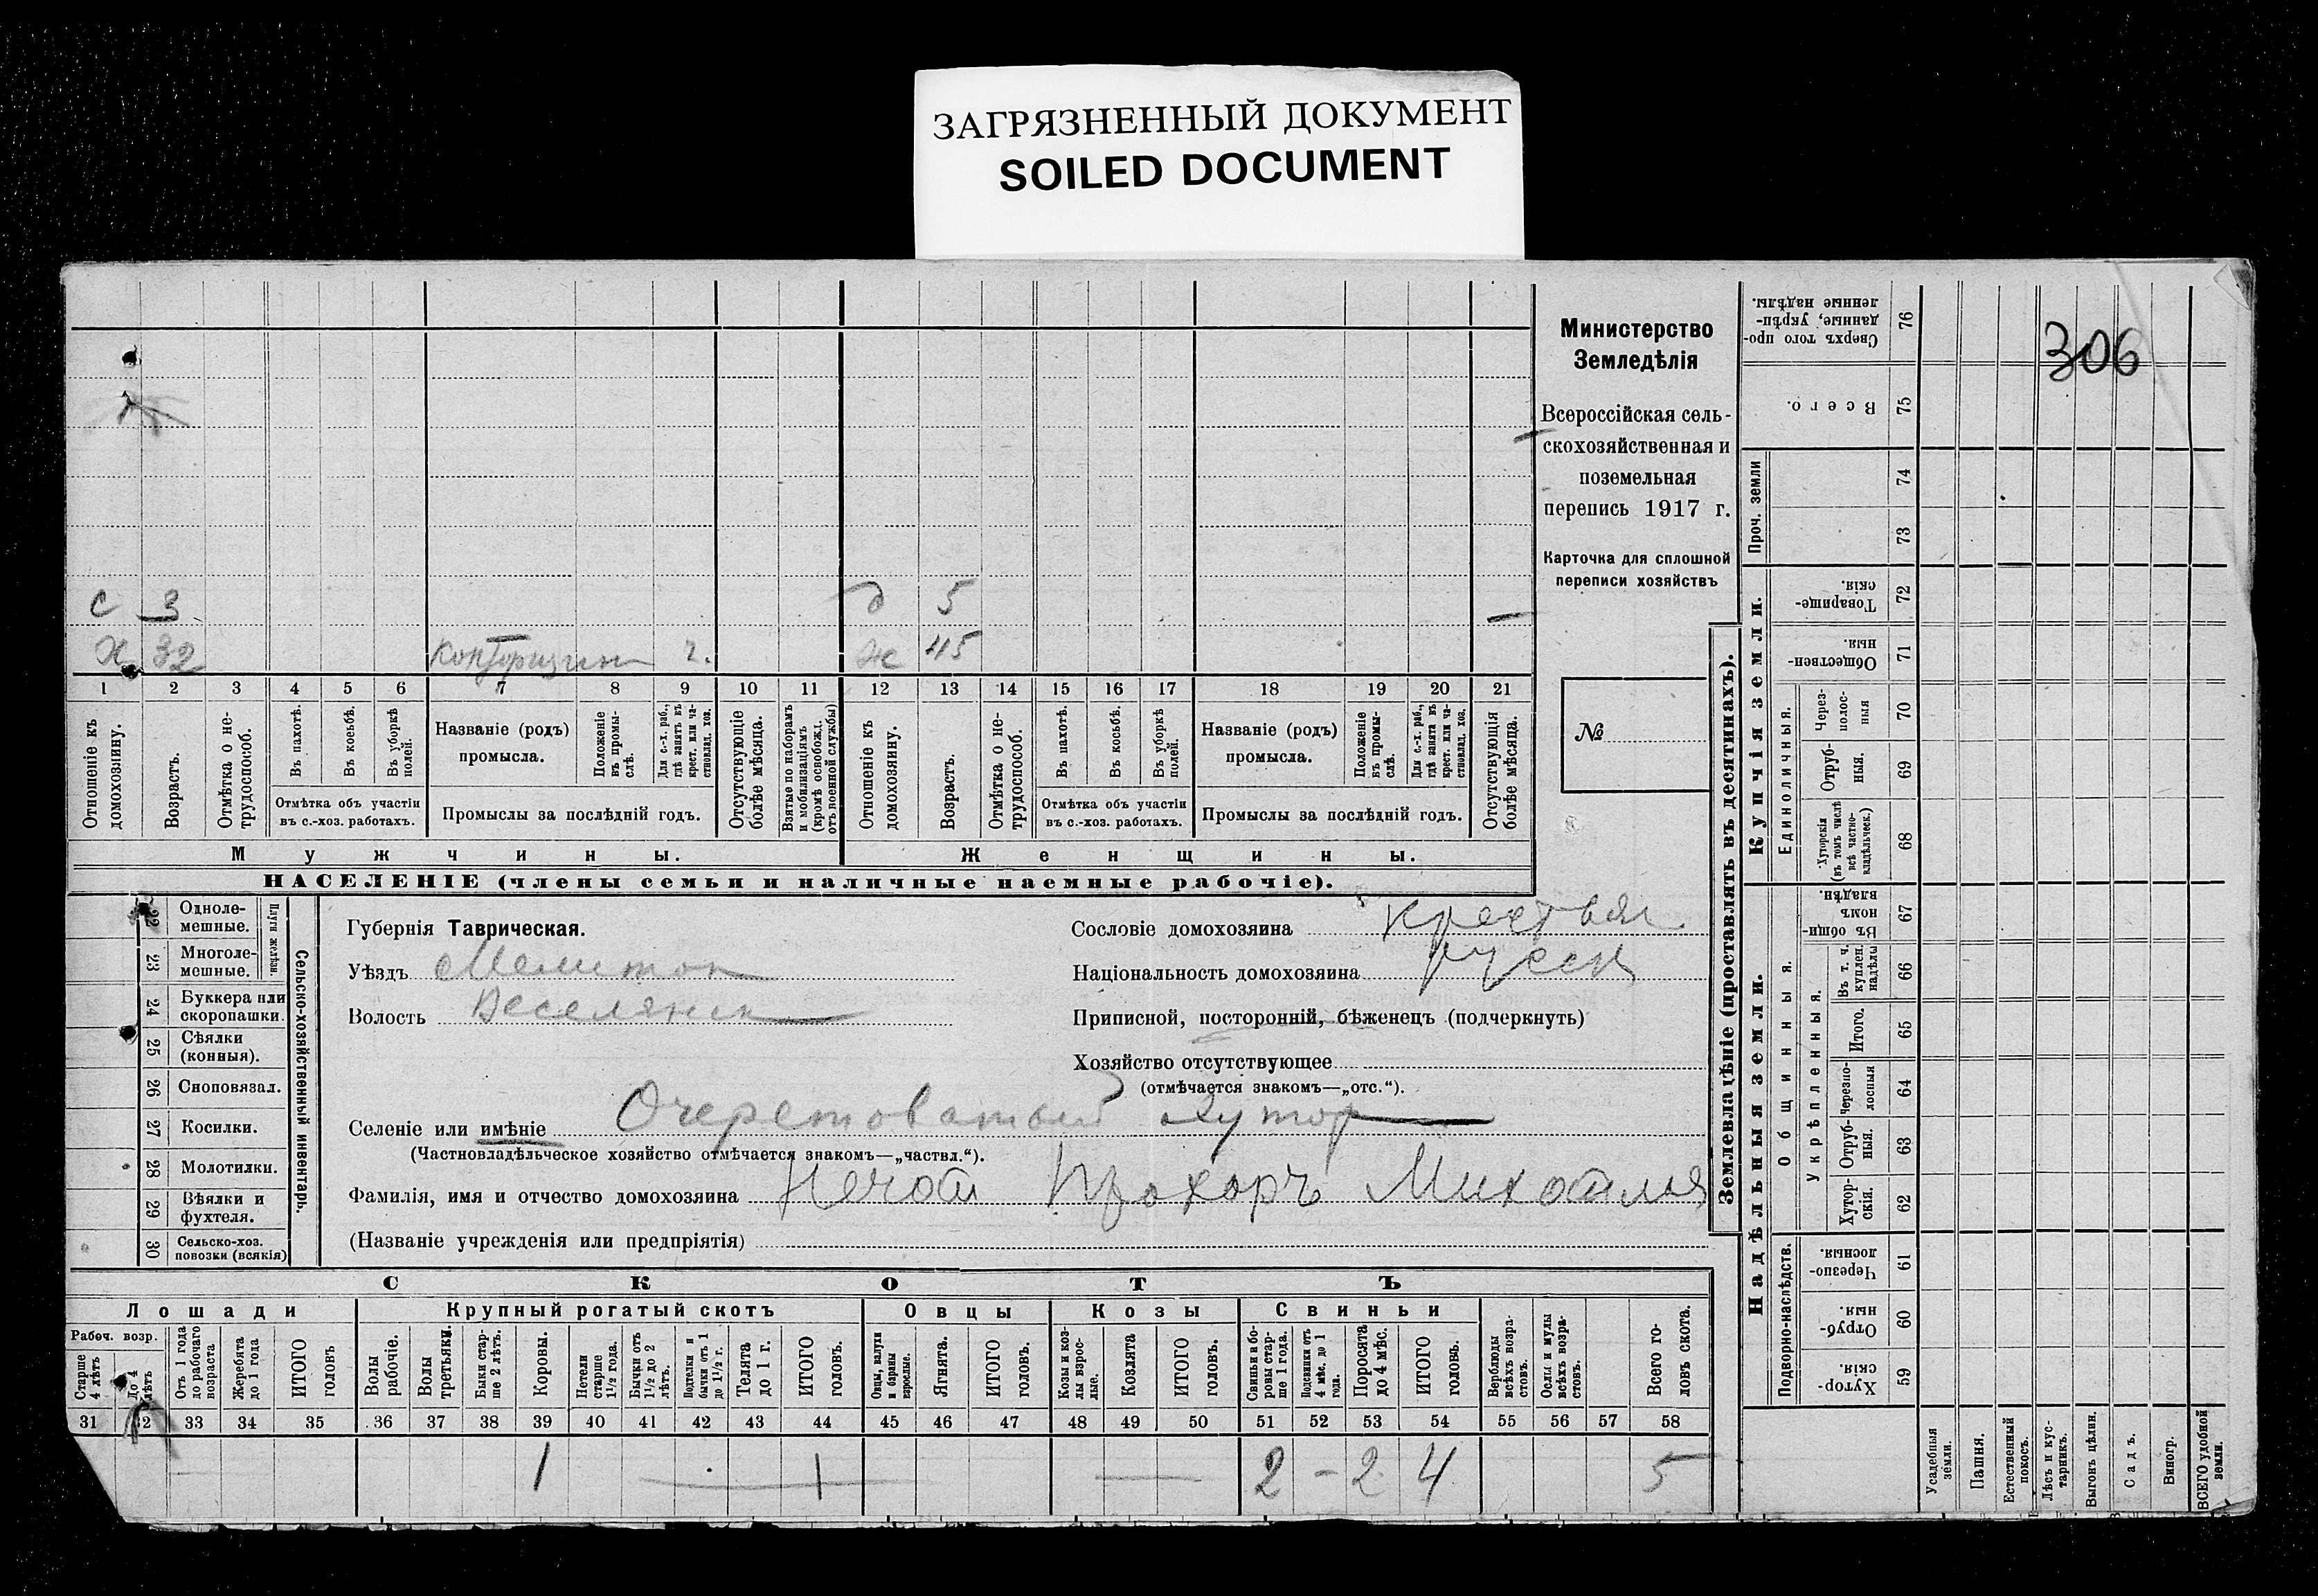 ЗАГРЯЗНЕННЫЙ ДОКУМЕНТ
SOILED DOCUMENT
306
Министерство
Земледѣлія
Всероссійская сель-
скохозяйственная и
поземельная
перепись 1917 г.
Карточка для сплошной
переписи хозяйствъ
№
с 3
д 5
х 32 ч.
ж 45
1 2 3 4 5 6 7 8 9 10 11 12 13 14 15 16 17 18 19 20 21
Отношеніе къ домохозяину.
Возрастъ.
Отмѣтка о не-трудоспособ.
Въ пахотѣ.
Въ косьбѣ.
Въ уборкѣ полей.
Отмѣтка объ участіи
въ с.-хоз. работахъ.
Названіе (родъ)
промысла.
Положеніе въ промы-слѣ.
Для с.-х. раб., гдѣ занятъ въ крест. или ча-стновлад. хоз.
Промыслы за послѣдній годъ.
Отсутствующіе болѣе мѣсяца.
Взятые по наборамъ и мобилизаціямъ (кромѣ освобожд. отъ военной службы)
Отношеніе къ домохозяину.
Возрастъ.
Отмѣтка о не-трудоспособ.
Въ пахотѣ.
Въ косьбѣ.
Въ уборкѣ полей.
Отмѣтка объ участіи
въ с.-хоз. работахъ.
Названіе (родъ)
промысла.
Положеніе въ промы-слѣ.
Для с.-х. раб., гдѣ занята въ крест. или ча-стновлад. хоз.
Промыслы за послѣдній годъ.
Отсутствующія болѣе мѣсяца.
Мужчины.
Женщины.
НАСЕЛЕНІЕ (члены семьи и наличные наемные рабочіе).
22 Одноле-мешные.
23 Многоле-мешные.
Плуги желѣзн.
24 Буккера или скоропашки.
25 Сѣялки (конныя).
26 Сноповязал.
27 Косилки.
28 Молотилки.
29 Вѣялки и фухтеля.
30 Сельско-хоз. повозки (всякія)
Сельско-хозяйственный инвентарь.
Губернія Таврическая.
Уѣздъ Мелитоп
Волость Веселянск
Сословіе домохозяина крестьян
Національность домохозяина русск
Приписной, посторонній, бѣженецъ (подчеркнуть)
Хозяйство отсутствующее
(отмѣчается знакомъ—„отс.“).
Селеніе или имѣніе Очеретоватый хутор
(Частновладѣльческое хозяйство отмѣчается знакомъ—„частвл.“).
Фамилія, имя и отчество домохозяина Нечай Прохоръ Михайлов
(Названіе учрежденія или предпріятія)
СКОТЪ
Лошади
Крупный рогатый скотъ
Овцы
Козы
Свиньи
Рабоч. возр.
Старше 4 лѣтъ
До 4 лѣтъ
Отъ 1 года до рабочаго возраста
Жеребята до 1 года
ИТОГО головъ
Волы рабочіе.
Волы третьяки.
Быки стар-ше 2 лѣтъ.
Коровы.
Нетели старше 1½ года.
Бычки отъ 1½ до 2 лѣтъ.
Подтелки и бычки отъ 1 до 1½ г.
Телята до 1 г.
ИТОГО головъ.
Овцы, валухи и бараны взрослые.
Ягнята.
ИТОГО головъ.
Козы и коз-лы взрос-лые.
Козлята
ИТОГО головъ.
Свиньи и бо-ровы стар-ше 1 года.
Подсвинки отъ 4 мѣс. до 1 года.
Поросята до 4 мѣс.
ИТОГО головъ.
Верблюды всѣхъ возра-стовъ.
Ослы и мулы всѣхъ возра-стовъ.
Всего го-ловъ скота.
31 32 33 34 35 36 37 38 39 40 41 42 43 44 45 46 47 48 49 50 51 52 53 54 55 56 57 58
1 1 2 - 2 4 5
Землевладѣніе (проставлять въ десятинахъ).
Сверхъ того про-данные, укрѣп-ленные надѣлы. 76
Всего. 75
Проч. земли 74
73
Купчія земли.
Товарище-скія. 72
Обществен-ныя 71
Единоличныя.
Через-полос-ныя 70
Отруб-ныя. 69
Хуторскія (въ томъ числѣ всѣ частно-владѣльческ.) 68
Надѣльныя земли.
Общинныя.
Въ общин-номъ владѣн. 67
Укрѣпленныя.
Въ т. ч. куплен. надѣлы 66
Итого. 65
Черезпо-лосныя 64
Отруб-ныя. 63
Хутор-скія. 62
Подворно-наслѣдств.
Черезпо-лосныя. 61
Отруб-ныя. 60
Хутор-скія. 59
Усадебныя земли.
Пашня.
Естественный покосъ.
Лѣсъ и кус-тарникъ.
Выгонъ цѣлин.
Садъ.
Виногр.
ВСЕГО удобной земли.